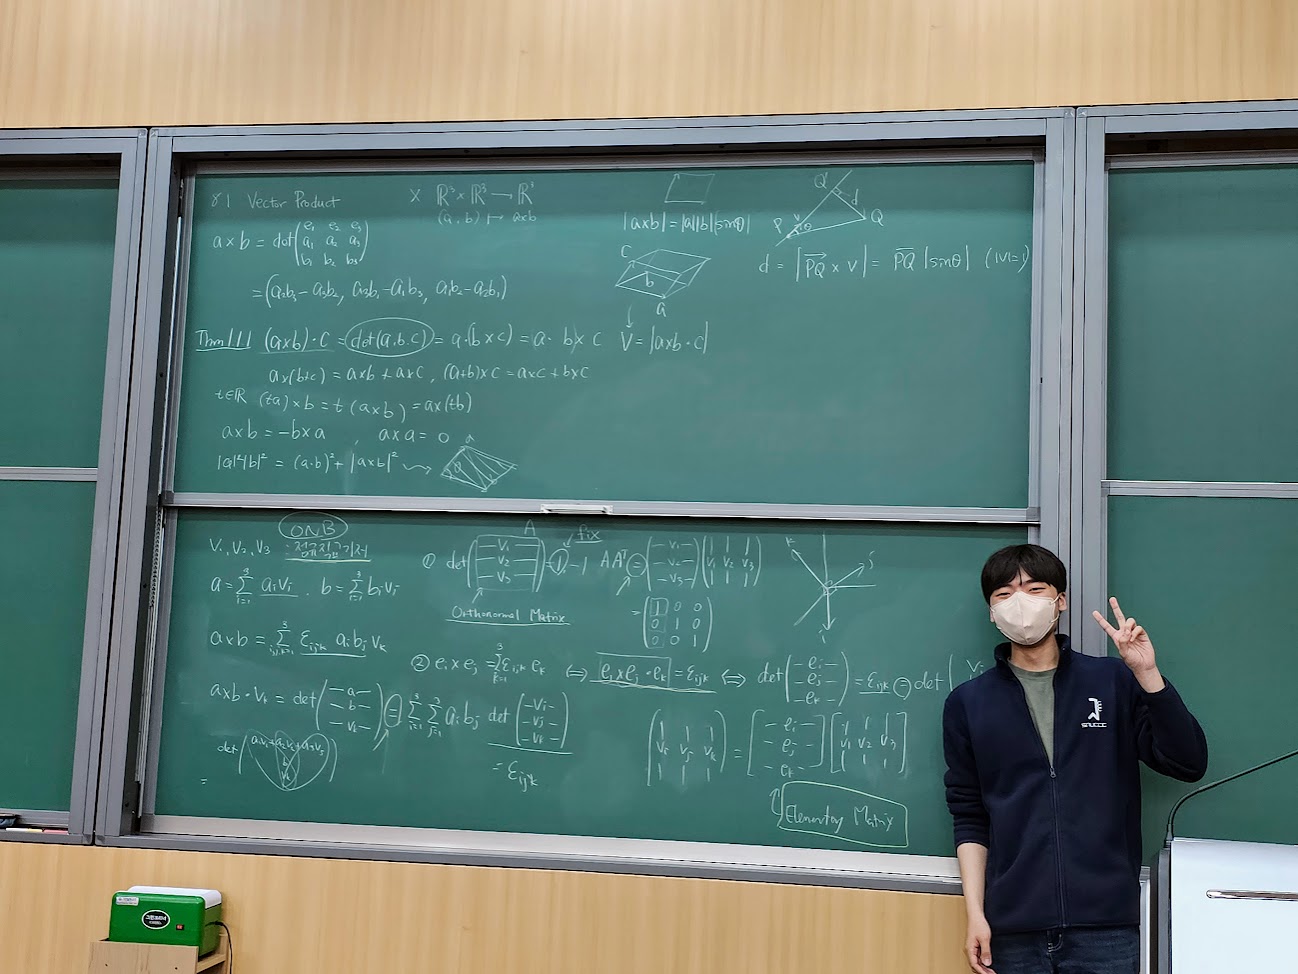 §1 Vector Product
× ℝ³ × ℝ³ → ℝ³
(a, b) ↦ a×b
a×b = det(e₁ e₂ e₃
a₁ a₂ a₃
b₁ b₂ b₃)
= (a₂b₃ − a₃b₂, a₃b₁ − a₁b₃, a₁b₂ − a₂b₁)
Thm 1.1.1 (a×b)·c = det(a,b,c) = a·(b×c) = a· b×c
a×(b+c) = a×b + a×c, (a+b)×c = a×c + b×c
t∈ℝ (ta)×b = t(a×b) = a×(tb)
a×b = −b×a, a×a = 0
|a|²|b|² = (a·b)² + |a×b|²
a
|a×b| = |a||b||sinθ|
C
b
a
V = |a×b·c|
Q'
d
P v θ Q
d = |PQ × v| = PQ |sinθ| (|v|=1)
ONB
v₁, v₂, v₃ : 정규직교기저
a = Σ³ᵢ₌₁ aᵢvᵢ , b = Σ³ᵢ₌₁ bᵢvᵢ
a×b = Σ³ᵢ,ⱼ,ₖ₌₁ εᵢⱼₖ aᵢbⱼvₖ
a×b·vₖ = det(−a−
−b−
−vₖ−) = Σ³ᵢ₌₁ Σ³ⱼ₌₁ aᵢbⱼ det(−vᵢ−
−vⱼ−
−vₖ−)
= εᵢⱼₖ
det(a₁v₁+a₂v₂+a₃v₃
b
vₖ)
=
A fix
① det(−v₁−
−v₂−
−v₃−) = 1, −1
Orthonormal Matrix
AAᵀ = (−v₁−
−v₂−
−v₃−)(v₁ v₂ v₃)
= (1 0 0
0 1 0
0 0 1)
② eᵢ × eⱼ = Σ³ₖ₌₁ εᵢⱼₖ eₖ ⇔ eᵢ×eⱼ·eₖ = εᵢⱼₖ ⇔ det(−eᵢ−
−eⱼ−
−eₖ−) = εᵢⱼₖ = det(vᵢ
(vᵢ vⱼ vₖ) = [−eᵢ−
−eⱼ−
−eₖ−][v₁ v₂ v₃]
Elementary Matrix
그린코리너